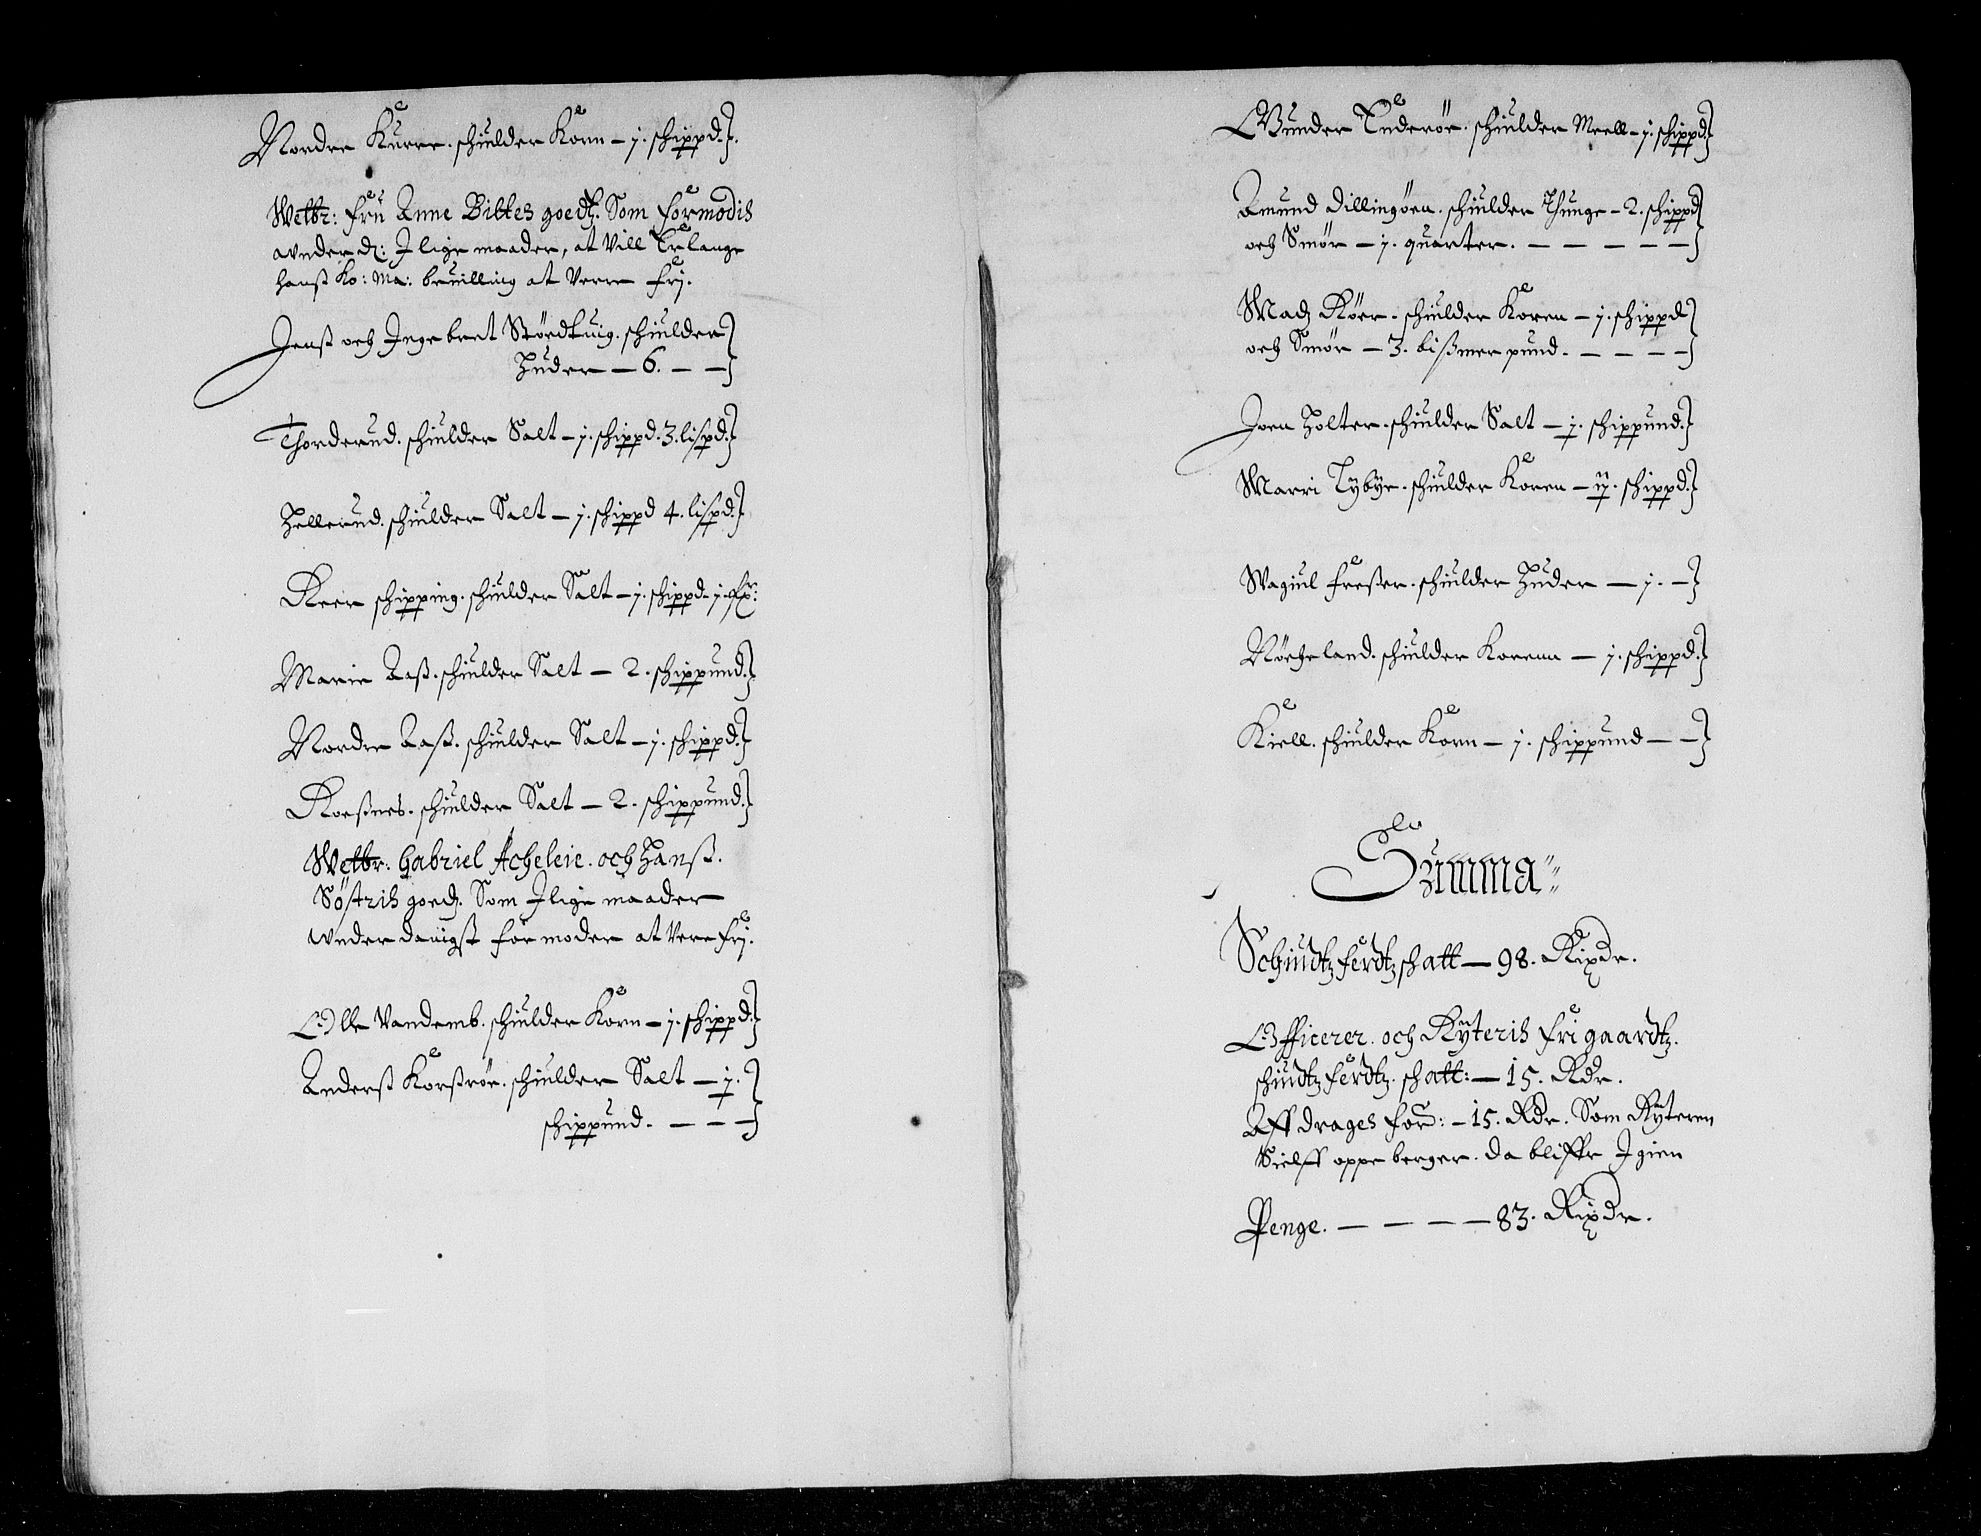 Nordre Kurre. schiulder Korn – j. schippd.
Welbr: Frü Anne Bittes goedtz. Som formodis
wnder d: J lige maader, at Vill Erlange
hanß Ko: Ma: beuilling at Verre frj.
Jenß och Jngebret Störedtuig. schiulder
Huder – 6. – –
Thorderud. schiulder Salt – j. schippd. 3. lispd.
Hellerud. schiulder Salt – j. schippd 4. lispd.
Reer schipping. schiulder Salt – j. schippd. j.
Marie Aaß. schiulder Salt – 2. schippund.
Nordre Aaß. schiulder Salt – j. schippd.
Roeßnes. schiulder Salt – 2. schippund.
Welbr: Gabriel Acheleie. och Hanß.
Söstris goedz. Som J lige maader
wnder danigst formoder at Vere frj.
Olle Vandemb. schiulder Korn – j. schippd.
Anderß Korßröe. schiulder Salt – j.
schippund. – – –
Gunder Enderöe. schiulder Meell – j. schippd.
Amund Dillingöen. schiulder Thunge – 2. schippd
och Smör – j. quarter. – – – – –
Madz Röer. schiulder Koren – j. schippd
och Smör – 3. bißmer pund. – – – –
Joen Holter. schiulder Salt – j. schippund.
Marri Tybye. schiulder Koren – schippd.
Wagiul Freßer. schiulder Huder – j. –
Nöcheland. schiulder Korenn – j. schippd.
Kiell. schiulder Korn – j. schippund – –
Summa
Schiudtzferdtz schatt – 98. Rixdr.
Officerer. och Rÿteris fri gaardtz.
schiudtzferdtz. schatt: – 15. Rdr.
Aff drages for: – 15. Rdr. Som Rÿteren
Sielff oppe berger. da bliffr J gien
Penge. – – – – 83. Rixdr.